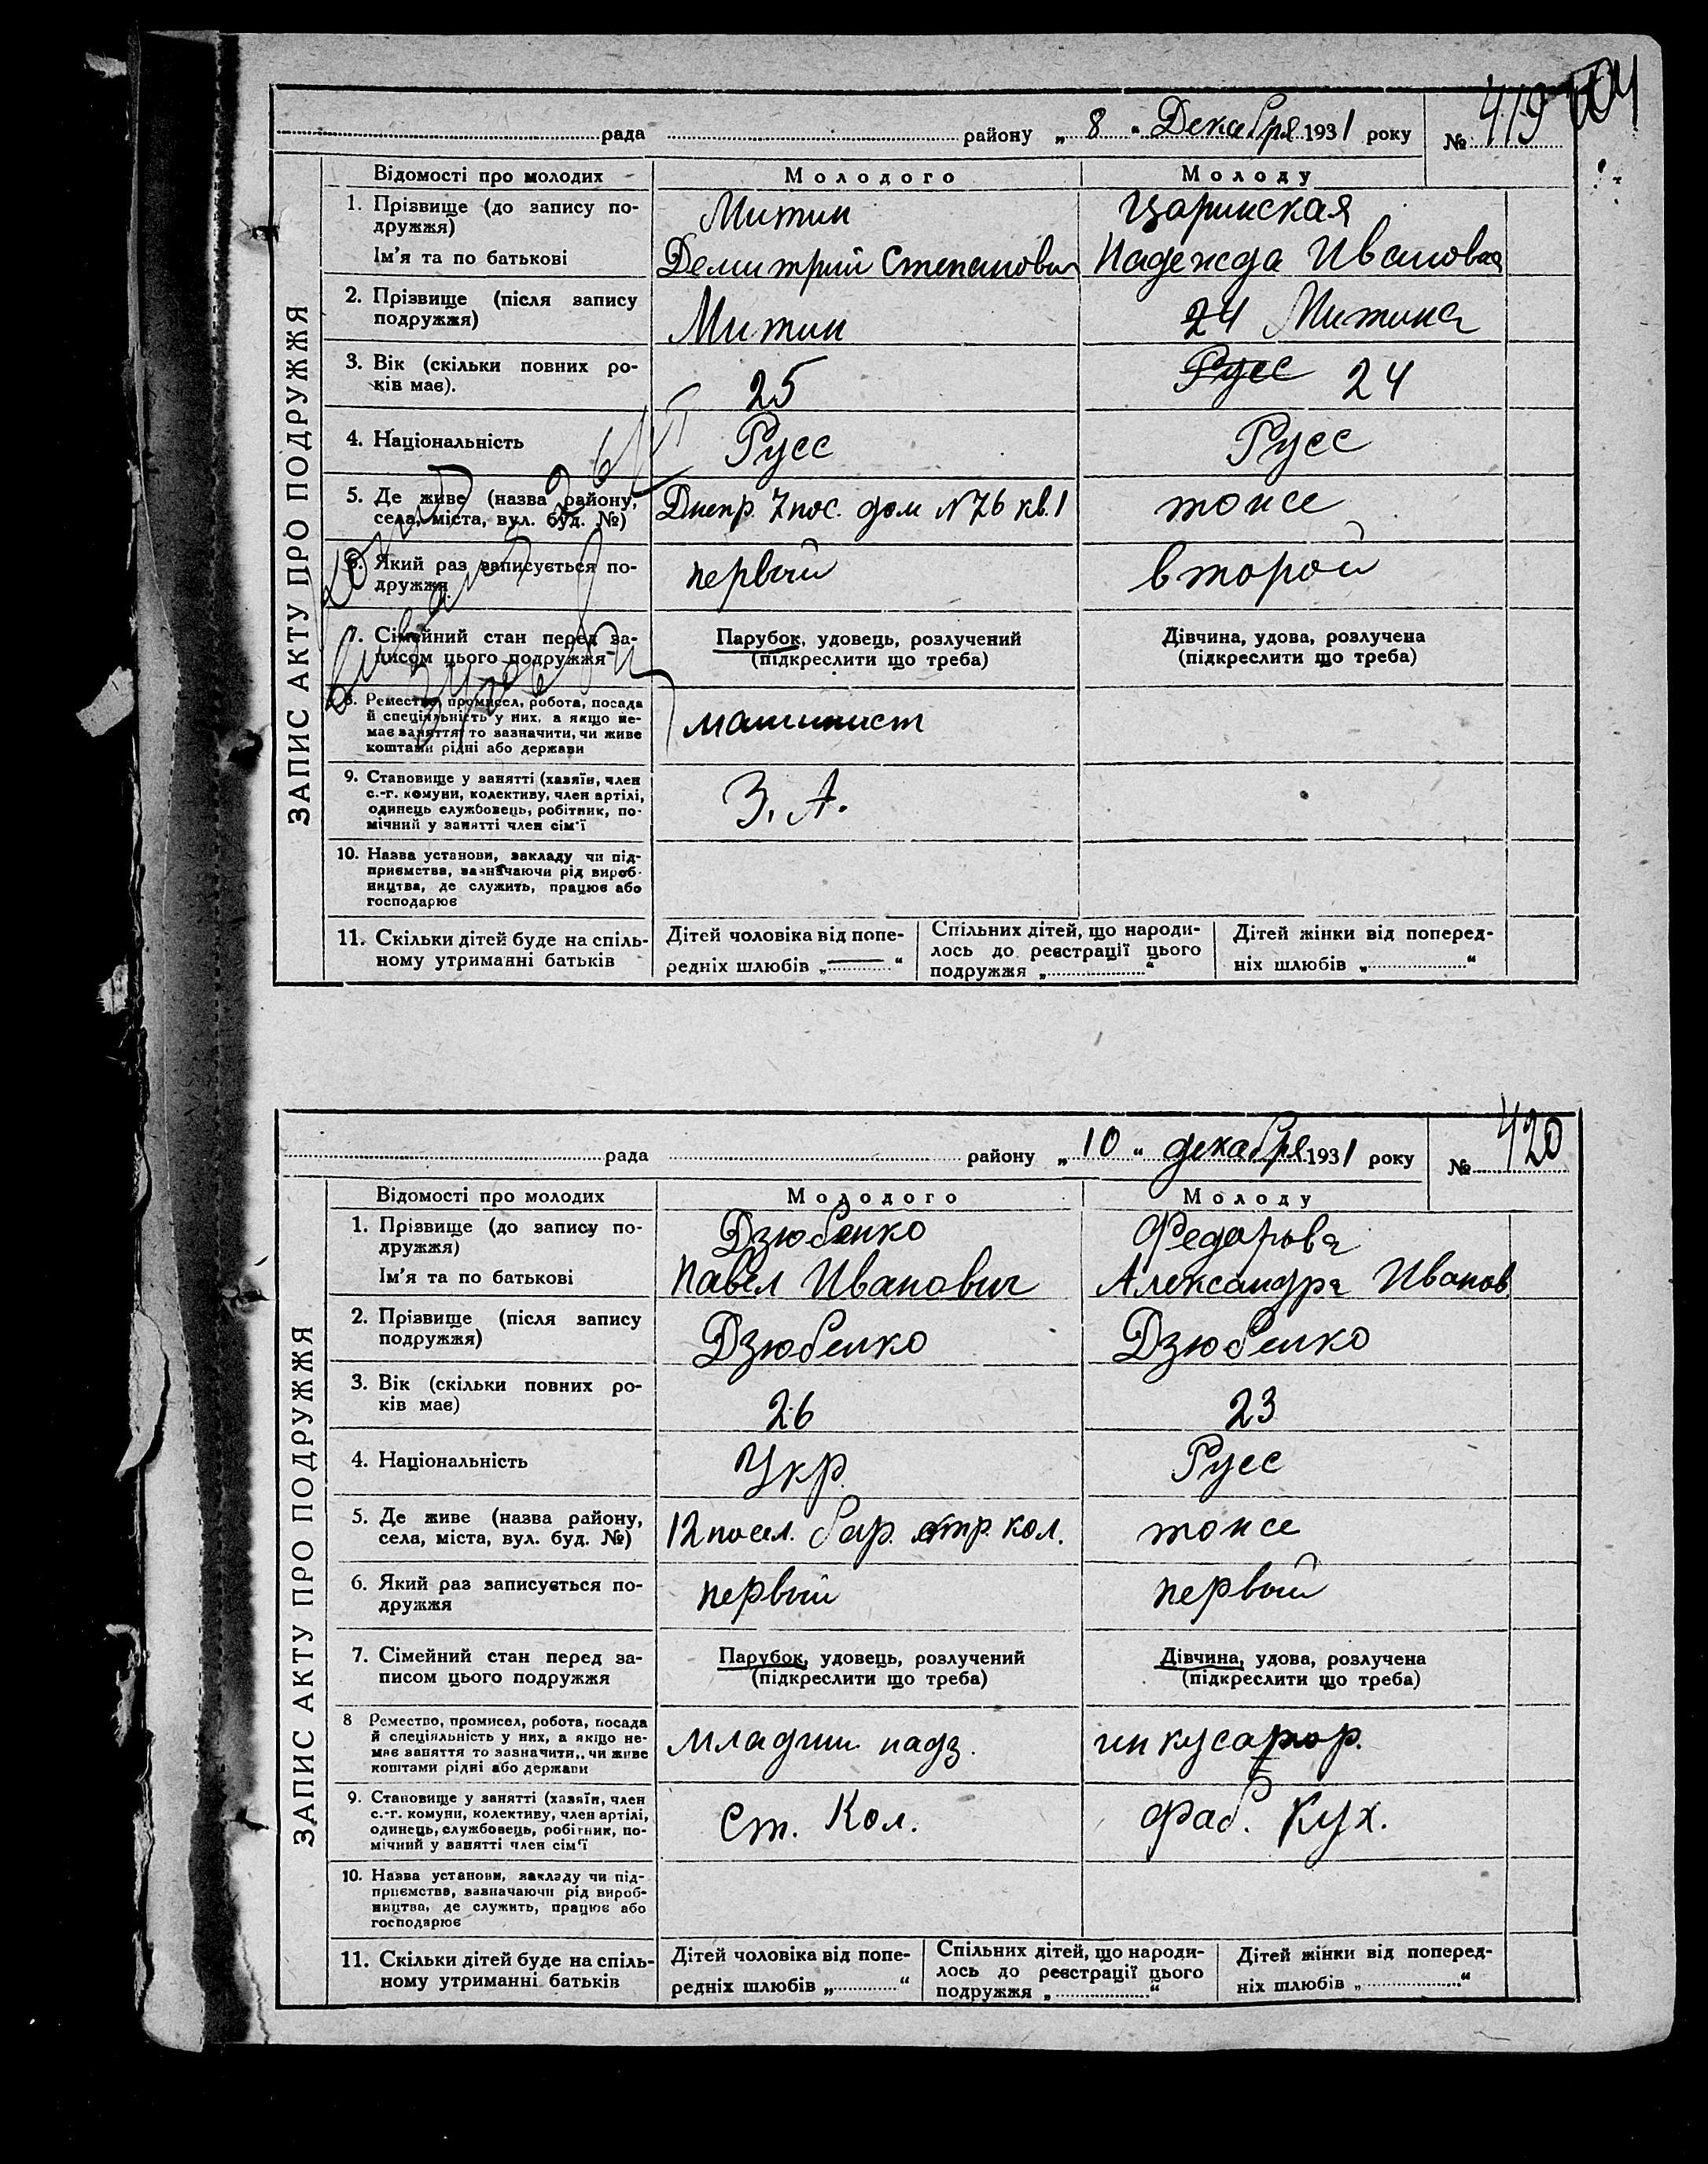 рада района „ 8 " Декабря 1931 року № 419
ЗАПИС АКТУ ПРО ПОДРУЖЖЯ
Відомості про молодих Молодого Молоду
1. Прізвище (до запису по-
дружжя) Митин Царинская
Ім'я та по батькові Демитрий Степанович Надежда Ивановна
2. Прізвище (після запису
подружжя) Митин 24 Митина
3. Вік (скільки повних ро-
ків має). 25 Русс 24
4. Національність Русс Русс
5. Де живе (назва району,
села, міста, вул. буд. №) Днепр. 7 пос. дом № 76 кв. 1 тоже
6. Який раз записується по-
дружжя первый второй
7. Сімейний стан перед за-
писом цього подружжя
Парубок, удовець, розлучений
(підкреслити що треба)
Дівчина, удова, розлучена
(підкреслити що треба)
8. Ремество, промисел, робота, посада
й спеціяльність у них, а якщо не-
має заняття то зазначити, чи живе
коштами рідні або держави
машинист
9. Становище у занятті (хазяїн, член
с.-г. комуни, колективу, член артілі,
одинець службовець, робітник, по-
мічний у занятті член сім'ї
З. А.
10. Назва установи, закладу чи під-
приємства, зазначаючи рід вироб-
ництва, де служить, працює або
господарює
11. Скільки дітей буде на спіль-
ному утриманні батьків
Дітей чоловіка від попе-
редніх шлюбів „ — "
Спільних дітей, що народи-
лось до реєстрації цього
подружжя „ "
Дітей жінки від поперед-
ніх шлюбів „ "
рада району „ 10 " декабря 1931 року № 420
ЗАПИС АКТУ ПРО ПОДРУЖЖЯ
Відомості про молодих Молодого Молоду
1. Прізвище (до запису по-
дружжя) Дзюбенко Федорова
Ім'я та по батькові Павел Иванович Александра Иванов
2. Прізвище (після запису
подружжя) Дзюбенко Дзюбенко
3. Вік (скільки повних ро-
ків має) 26 23
4. Національність Укр. Русс
5. Де живе (назва району,
села, міста, вул. буд. №) 12 посел. бар. стр. кол. тоже
6. Який раз записується по-
дружжя первый первый
7. Сімейний стан перед за-
писом цього подружжя
Парубок, удовець, розлучений
(підкреслити що треба)
Дівчина, удова, розлучена
(підкреслити що треба)
8 Ремество, промисел, робота, посада
й спеціяльність у них, а якщо не-
має заняття то зазначити, чи живе
коштами рідні або держави
младши надз.
9. Становище у занятті (хазяїн, член
с.-г. комуни, колективу, член артілі,
одинець, службовець, робітник, по-
мічний у занятті член сім'ї
Ст. Кол. Фаб. Кух.
10. Назва установи, закладу чи під-
приємства, зазначаючи рід вироб-
ництва, де служить, працює або
господарює
11. Скільки дітей буде на спіль-
ному утриманні батьків
Дітей чоловіка від попе-
редніх шлюбів „ "
Спільних дітей, що народи-
лось до реєстрації цього
подружжя „ "
Дітей жінки від поперед-
ніх шлюбів „ "